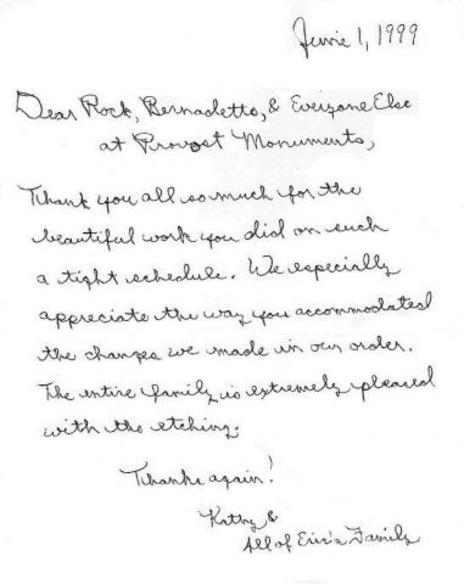 June 1, 1999
Dear Rock, Bernadette, & Everyone Else
at Provost Monuments,
Thank you all so much for the
beautiful work you did on such
a tight schedule. We especially
appreciate the way you accommodated
the changes we made in our order.
The entire family is extremely pleased
with the etching.
Thanks again!
Kathy &
All of Eric's Family